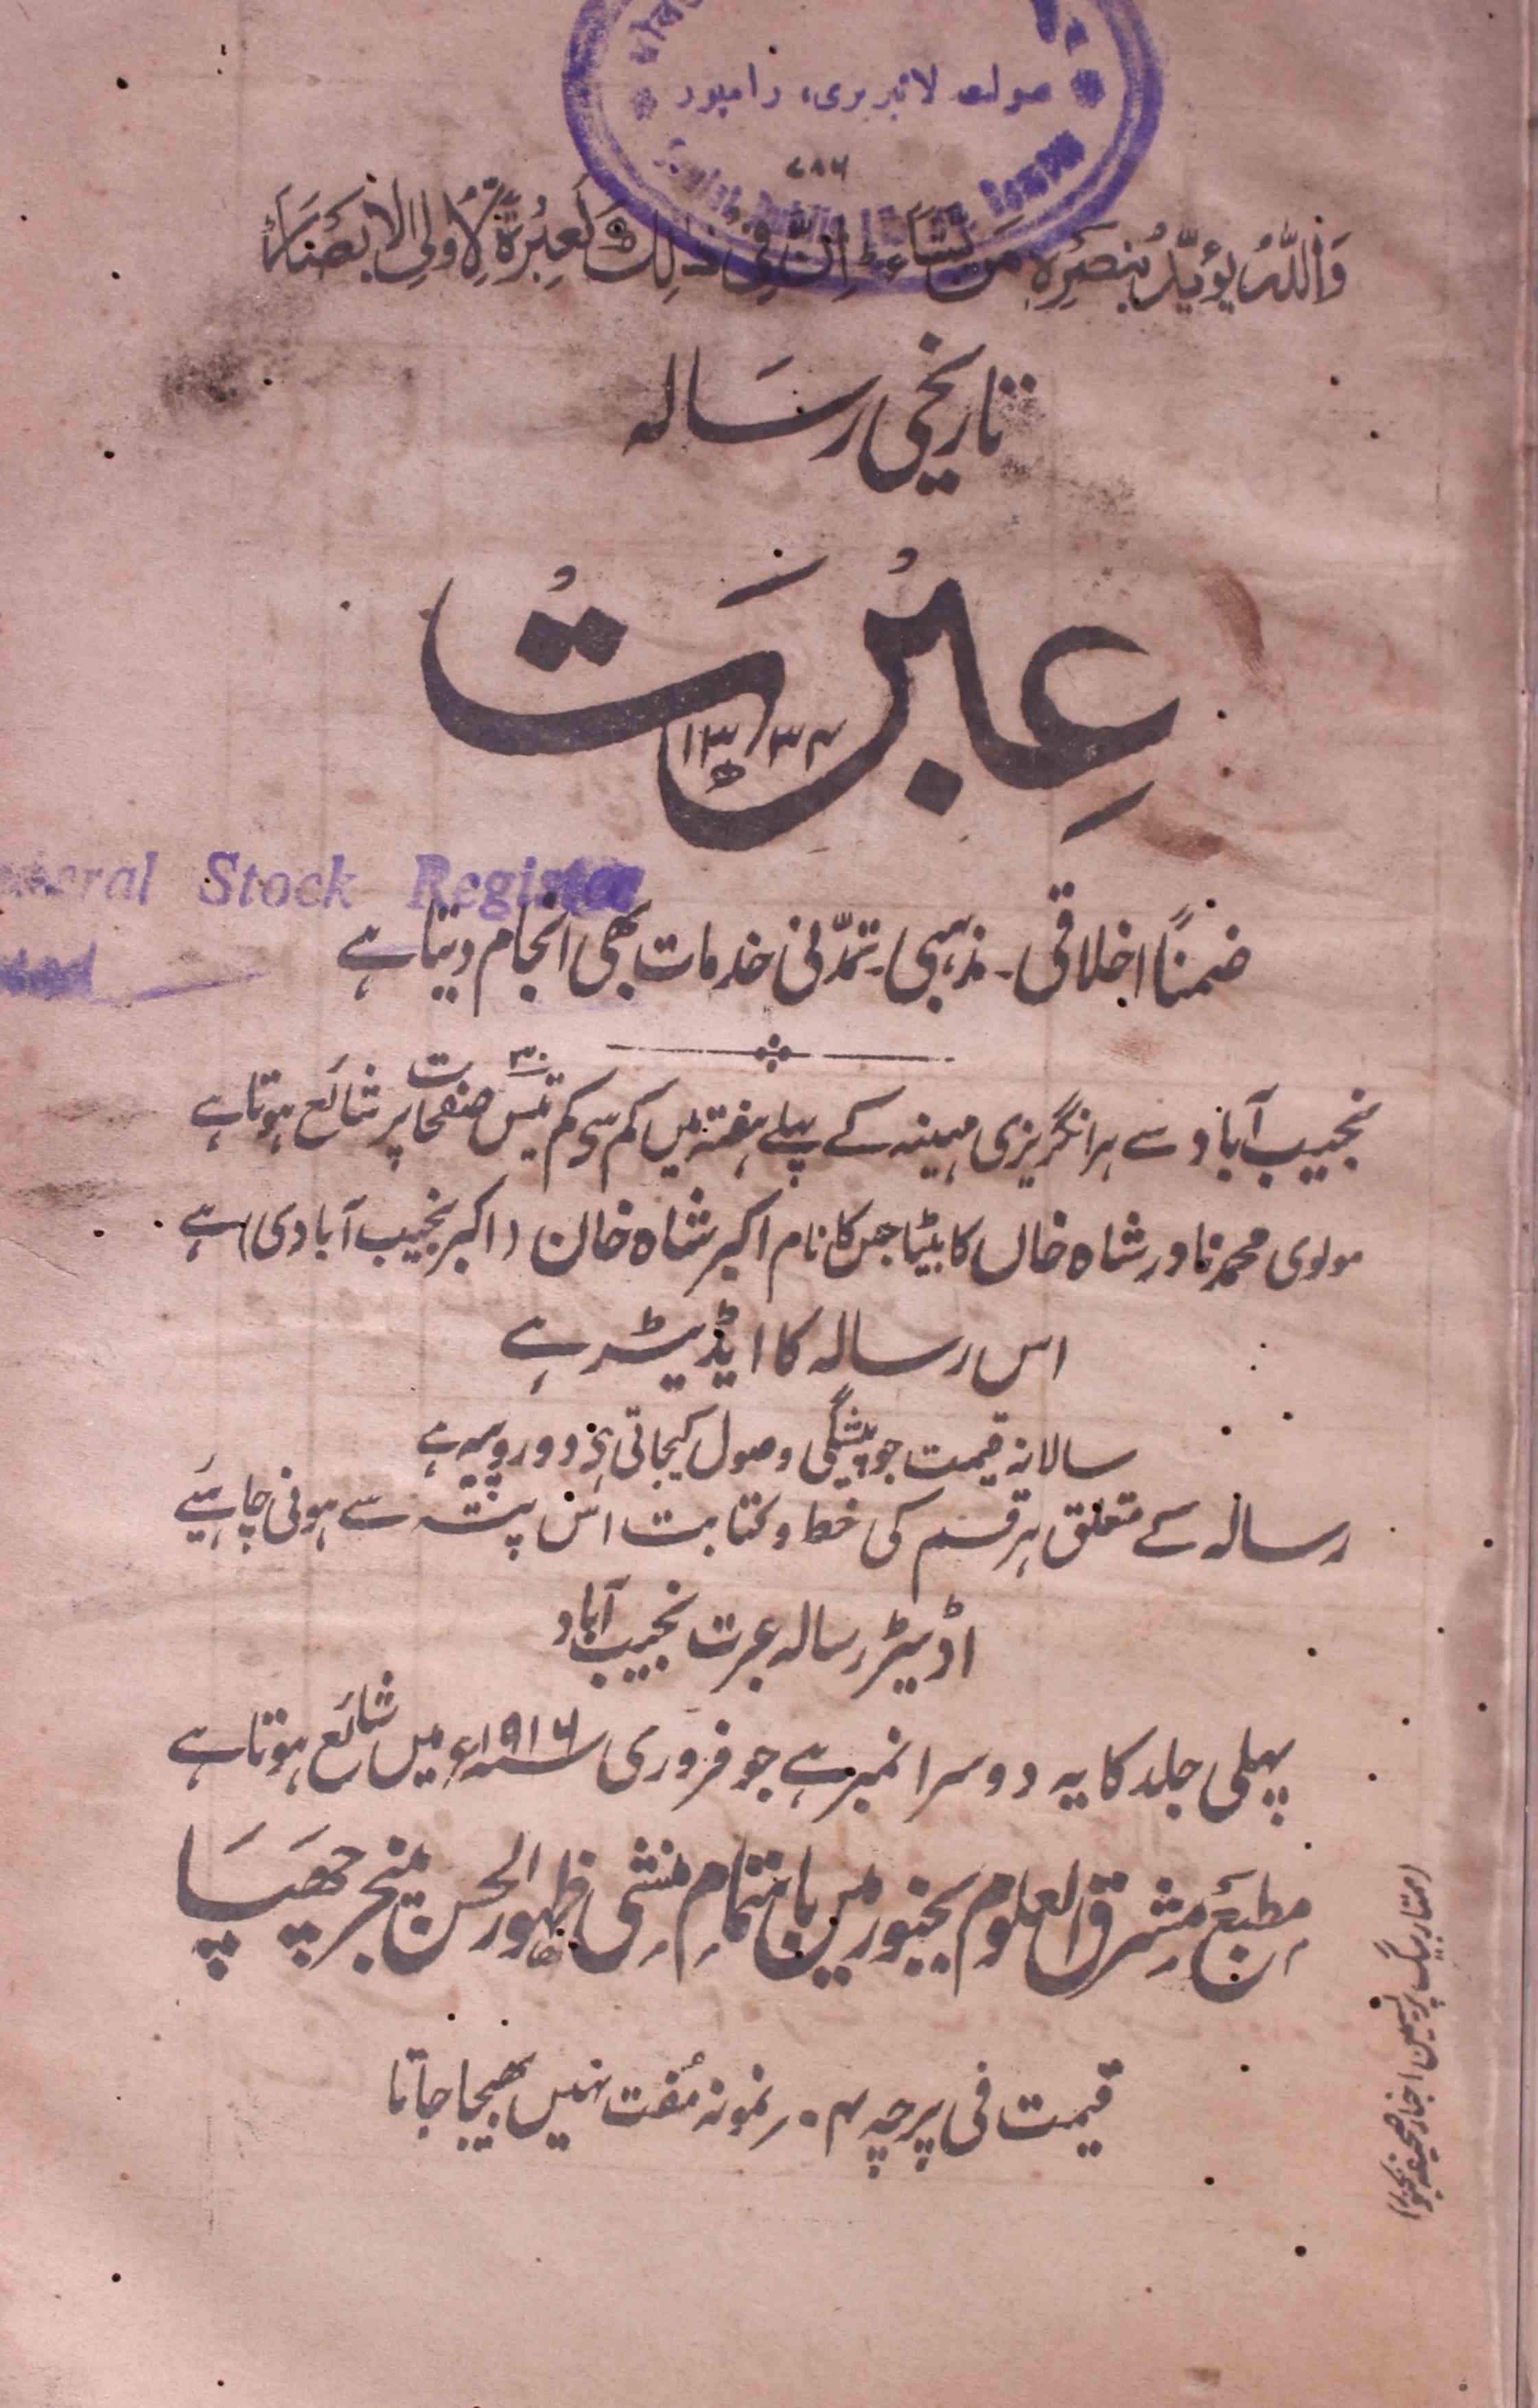 صولت لائبریری، رامپور
۷۸۶
وَاللّٰہُ یُؤَیِّدُ بِنَصْرِہٖ مَنْ یَّشَآءُ ط اِنَّ فِیْ ذٰلِکَ لَعِبْرَۃً لِّاُولِی الْاَبْصَارِ
تاریخی رسالہ
عِبْرَتْ
۱۳۳۴ھ
General Stock Register
ضمنًا اخلاقی - مذہبی - تمدّنی خدمات بھی انجام دیتا ہے
نجیب آباد سے ہر انگریزی مہینہ کے پہلے ہفتہ میں کم سی کم تیس ۳۰ صفحات پر شائع ہوتا ہے
مولوی محمد نادر شاہ خاں کا بیٹا جس کا نام اکبر شاہ خان (اکبر نجیب آبادی) ہے
اس رسالہ کا ایڈیٹر ہے
سالانہ قیمت جو پیشگی وصول کیجاتی ہی دو روپیہ ہے
رسالہ کے متعلق ہر قسم کی خط و کتابت اس پتہ سے ہونی چاہیئے
اڈیٹر رسالہ عبرت نجیب آباد
پہلی جلد کا یہ دوسرا نمبر ہے جو فروری ۱۹۱۶ء میں شائع ہوتا ہے
مطبع مشرق العلوم بجنور میں باہتمام منشی ظہور الحسن منیجر چھپا
قیمت فی پرچہ ۴ر نمونہ مُفت نہیں بھیجا جاتا